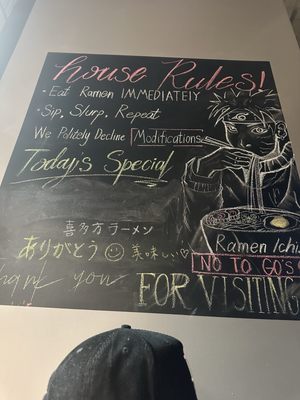 House Rules!
· Eat Ramen IMMEDIATELY
· Sip, Slurp, Repeat
We Politely Decline Modifications
Today's Special
喜多方ラーメン
ありがとう 美味しい
Ramen Ichi
NO TO GO'S
Thank you
FOR VISITING